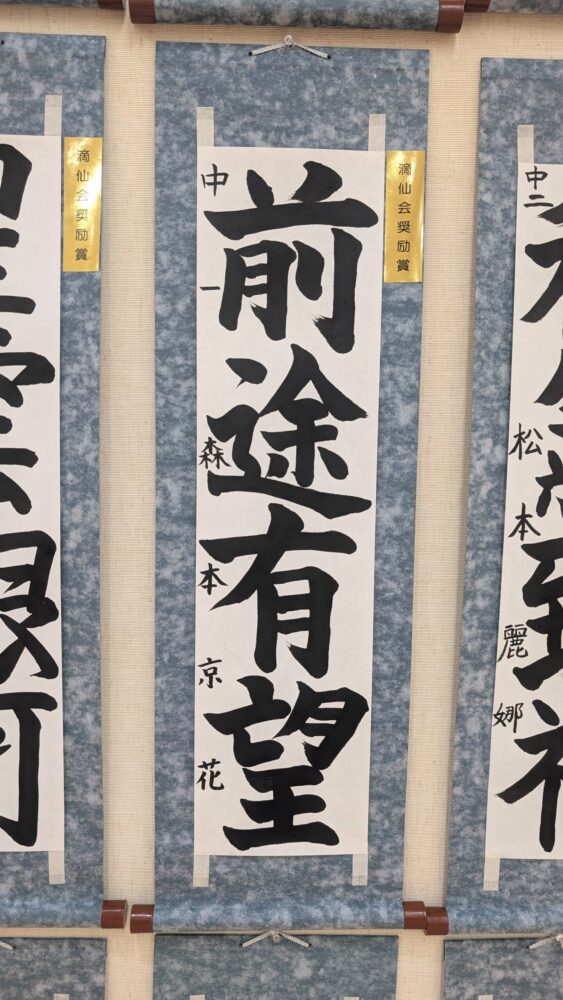 中二 松本麗娜
滴仙会奨励賞
前途有望
中一 森本京花
滴仙会奨励賞